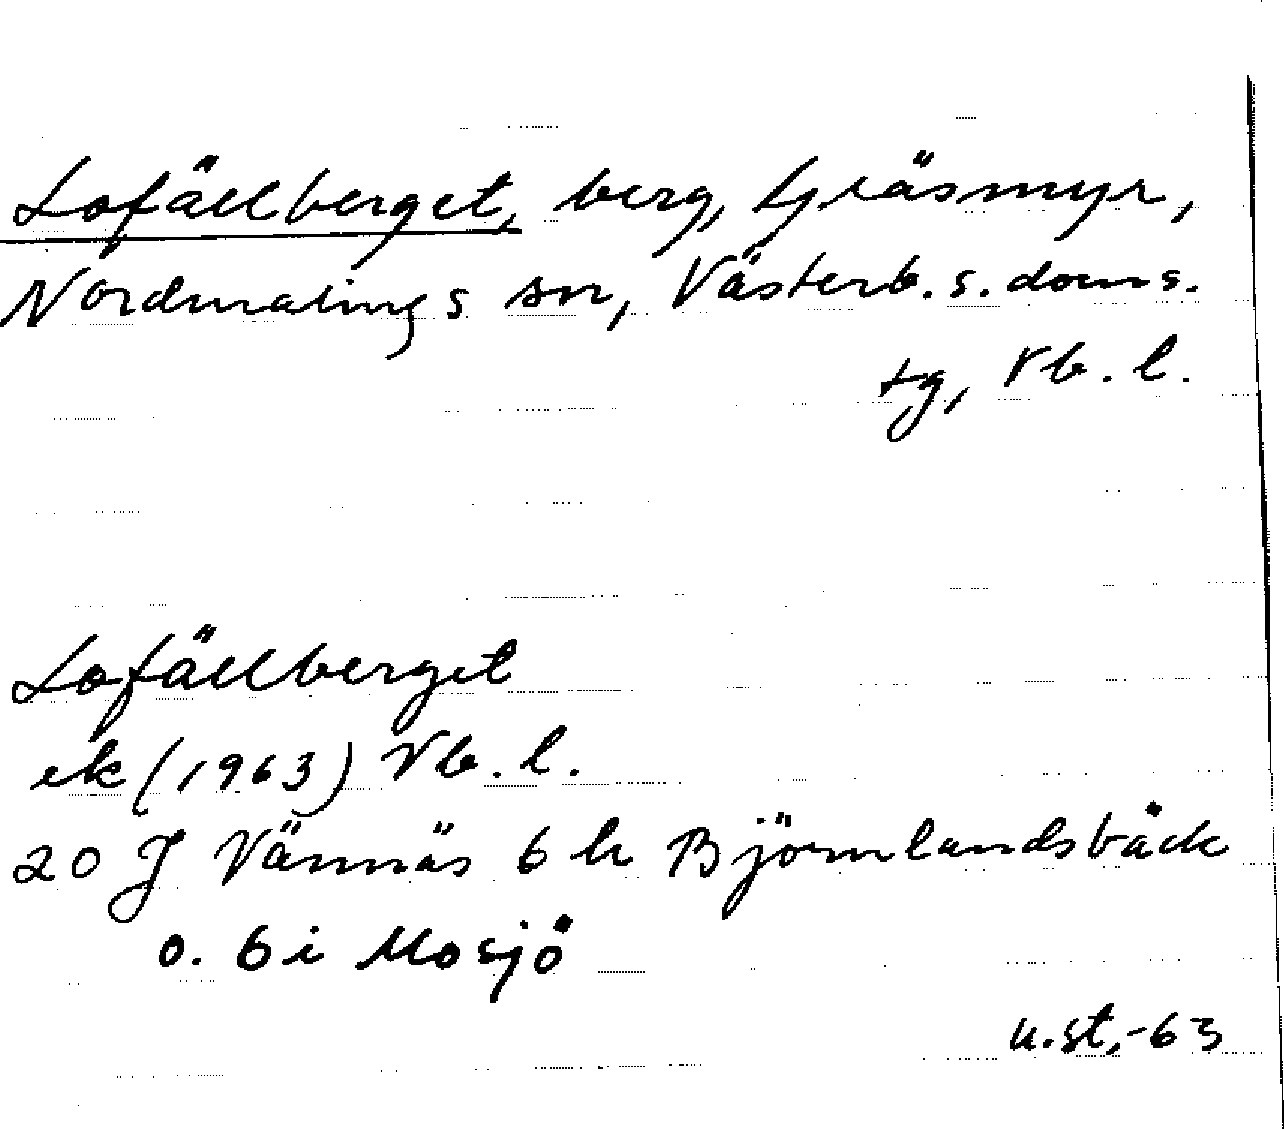 Lofällberget, berg, Gräsmyr,
Nordmalings sn, Västerb. s. doms.
tg, Vb. l.
Lofällberget
ek (1963) Vb. l.
20 J Vännäs 6 h Björnlandsbäck
o. 6 i Mosjö
u.st,-63